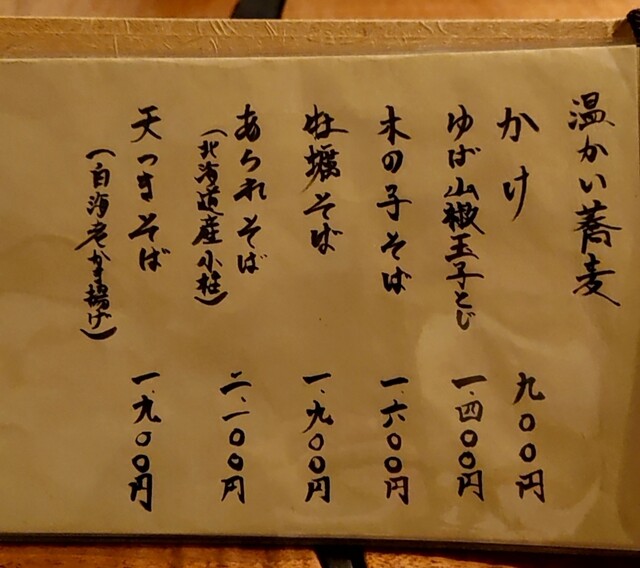 温かい蕎麦
かけ 九〇〇円
ゆば山椒玉子とじ 一、四〇〇円
木の子そば 一、六〇〇円
牡蠣そば 一、九〇〇円
あられそば 二、一〇〇円
(北海道産小柱)
天つきそば 一、九〇〇円
(白海老かき揚げ)